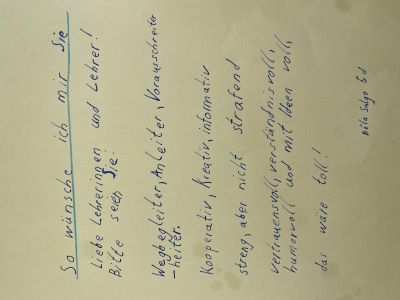 So wünsche ich mir Sie
Liebe Lehrerinnen und Lehrer!
Bitte seien Sie:
Wegbegleiter, Anleiter, Vorausschreiter
-heiter.
Kooperativ, Kreativ, informativ
streng, aber nicht strafend
vertrauensvoll, verständnisvoll,
humorvoll und mit Ideen voll,
das wäre toll!
Béla Salgo 5d